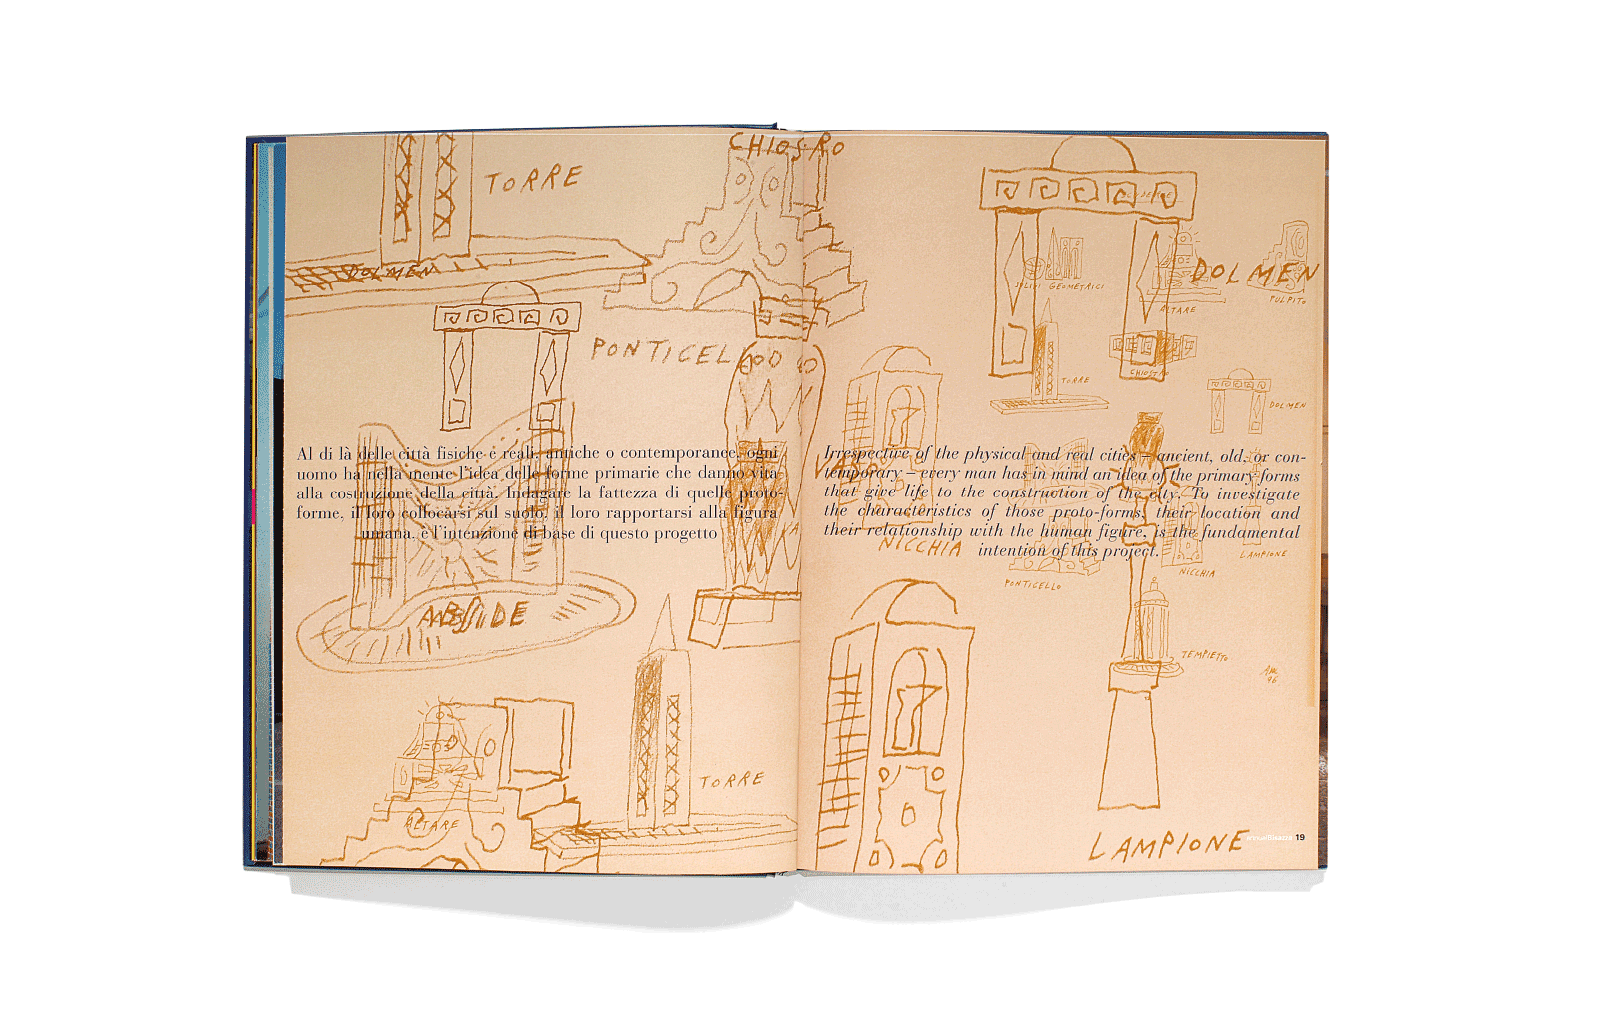 TORRE
DOLMEN
PONTICELLO
Al di là delle città fisiche e reali, antiche o contemporanee, ogni
uomo ha nella mente l'idea delle forme primarie che danno vita
alla costruzione della città. Indagare la fattezza di quelle proto-
forme, il loro collocarsi sul suolo, il loro rapportarsi alla figura
umana, è l'intenzione di base di questo progetto
ABSIDE
TORRE
ALTARE
CHIOSTRO
DOLMEN
SOLIDI GEOMETRICI
ALTARE
PULPITO
TORRE
CHIOSTRO
DOLMEN
VASO
Irrespective of the physical and real cities – ancient, old, or con-
temporary – every man has in mind an idea of the primary forms
that give life to the construction of the city. To investigate
the characteristics of those proto-forms, their location and
their relationship with the human figure, is the fundamental
intention of this project.
NICCHIA
LAMPIONE
NICCHIA
PONTICELLO
TEMPIETTO
96
LAMPIONE
19